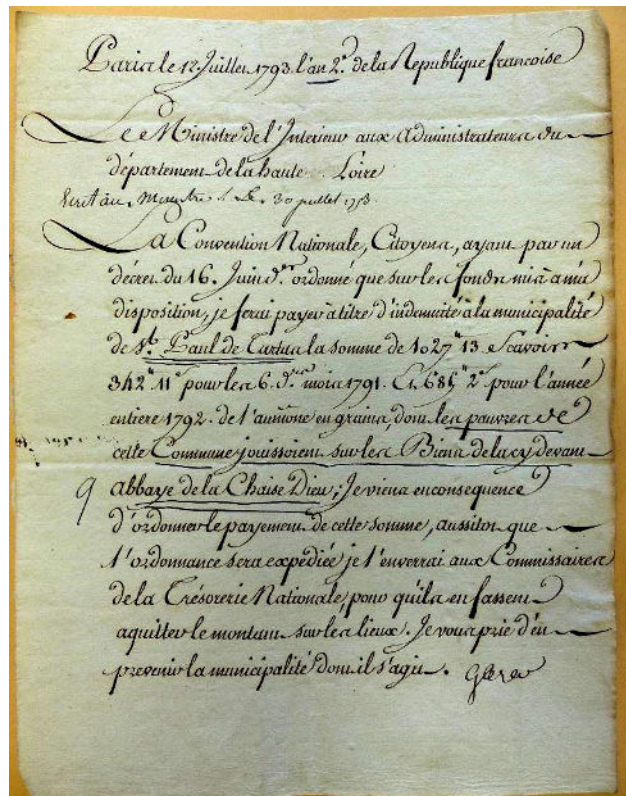 Paris le 12. Juillet 1793. l'an 2e. de la Republique francoise
Le Ministre de l'Interieur aux Administrateurs du
département de la haute Loire
Ecrit au 30 juillet 1793.
La Convention Nationale, Citoyens, ayant par un
décret du 16. Juin d.er ordonné que sur les fonds mis à ma
disposition, je ferai payer à titre d'indemnité à la municipalité
de St. Paul de Tartas la somme de 1027ᵗᵗ 13 Scavoir
342ᵗᵗ 11ˢ pour les 6. d.ers mois 1791. Et 685ᵗᵗ 2ˢ pour l'année
entiere 1792. de l'aumône en grains, dont les pauvres de
cette Commune jouissoient sur les Biens de la cy devant
9 abbaye de la Chaise Dieu; Je viens en consequence
d'ordonner le payement de cette somme, aussitot que
l'ordonnance sera expédiée je l'enverrai aux Commissaires
de la Trésorerie Nationale, pour qu'ils en fassent
aquitter le montant sur les lieux. Je vous prie d'en
prevenir la municipalité dont il s'agit. Garat